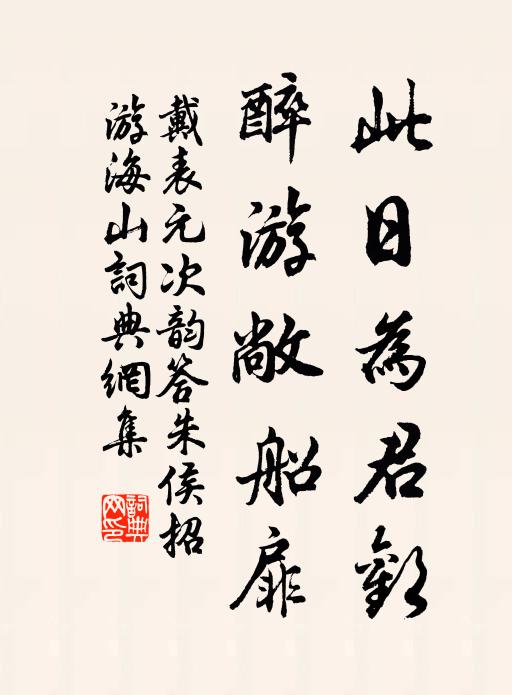 此日為君勸
醉游敞船扉
戴表元次韵答朱侯招
游海山詞典網集
詞典
网印